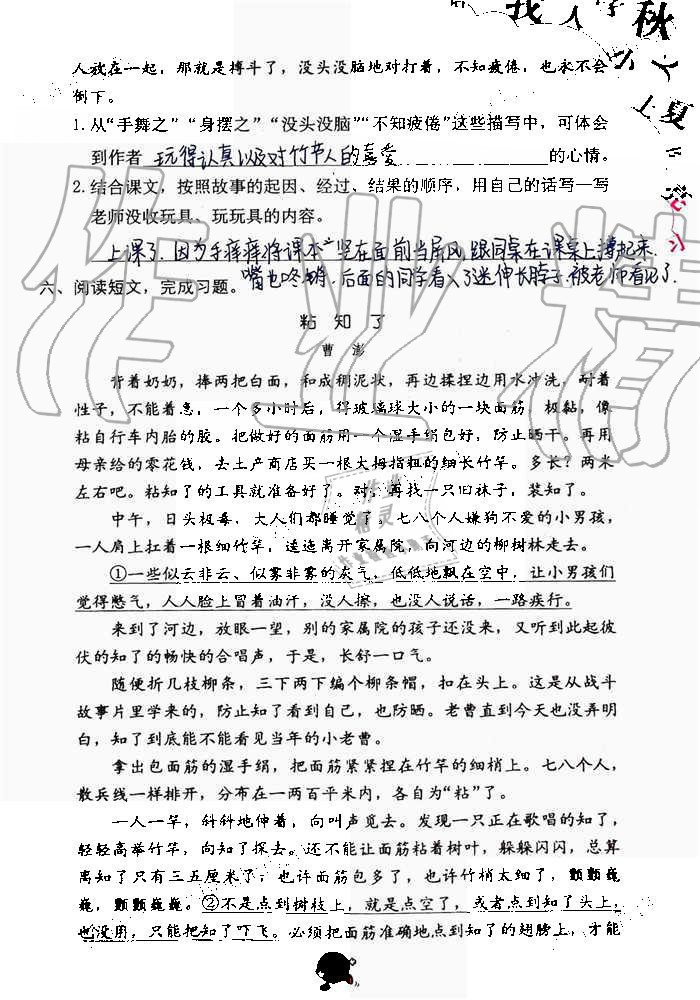 人放在一起，那就是搏斗了，没头没脑地对打着，不知疲倦，也永不会
倒下。
1. 从“手舞之”“身摆之”“没头没脑”“不知疲倦”这些描写中，可体会
到作者 玩得认真以及对竹节人的喜爱 的心情。
2. 结合课文，按照故事的起因、经过、结果的顺序，用自己的话写一写
老师没收玩具、玩玩具的内容。
上课了，因为手痒痒将课本竖在面前当屏风，跟同桌在课桌上搏起来，
嘴也咚锵，后面的同学看入了迷伸长脖子，被老师看见了
六、阅读短文，完成习题。
粘知了
曹澎
背着奶奶，捧两把白面，和成稠泥状，再边揉捏边用水冲洗，耐着
性子，不能着急，一个多小时后，得玻璃球大小的一块面筋，极黏，像
粘自行车内胎的胶。把做好的面筋用一个湿手绢包好，防止晒干。再用
母亲给的零花钱，去土产商店买一根大拇指粗的细长竹竿。多长？两米
左右吧。粘知了的工具就准备好了。对，再找一只旧袜子，装知了。
中午，日头极毒，大人们都睡觉了。七八个人嫌狗不爱的小男孩，
一人肩上扛着一根细竹竿，逶迤离开家属院，向河边的柳树林走去。
①一些似云非云、似雾非雾的灰气，低低地飘在空中，让小男孩们
觉得憋气，人人脸上冒着油汗，没人擦，也没人说话，一路疾行。
来到了河边，放眼一望，别的家属院的孩子还没来，又听到此起彼
伏的知了的畅快的合唱声，于是，长舒一口气。
随便折几枝柳条，三下两下编个柳条帽，扣在头上。这是从战斗
故事片里学来的，防止知了看到自己，也防晒。老曹直到今天也没弄明
白，知了到底能不能看见当年的小老曹。
拿出包面筋的湿手绢，把面筋紧紧捏在竹竿的细梢上。七八个人，
散兵线一样排开，分布在一两百平米内，各自为“粘”了。
一人一竿，斜斜地伸着，向叫声觅去。发现一只正在歌唱的知了，
轻轻高举竹竿，向知了探去。还不能让面筋粘着树叶，躲躲闪闪，总算
离知了只有三五厘米了，也许面筋包多了，也许竹梢太细了，颤颤巍
巍，颤颤巍巍。②不是点到树枝上，就是点空了，或者点到知了头上，
也没用，只能把知了吓飞。必须把面筋准确地点到知了的翅膀上，才能